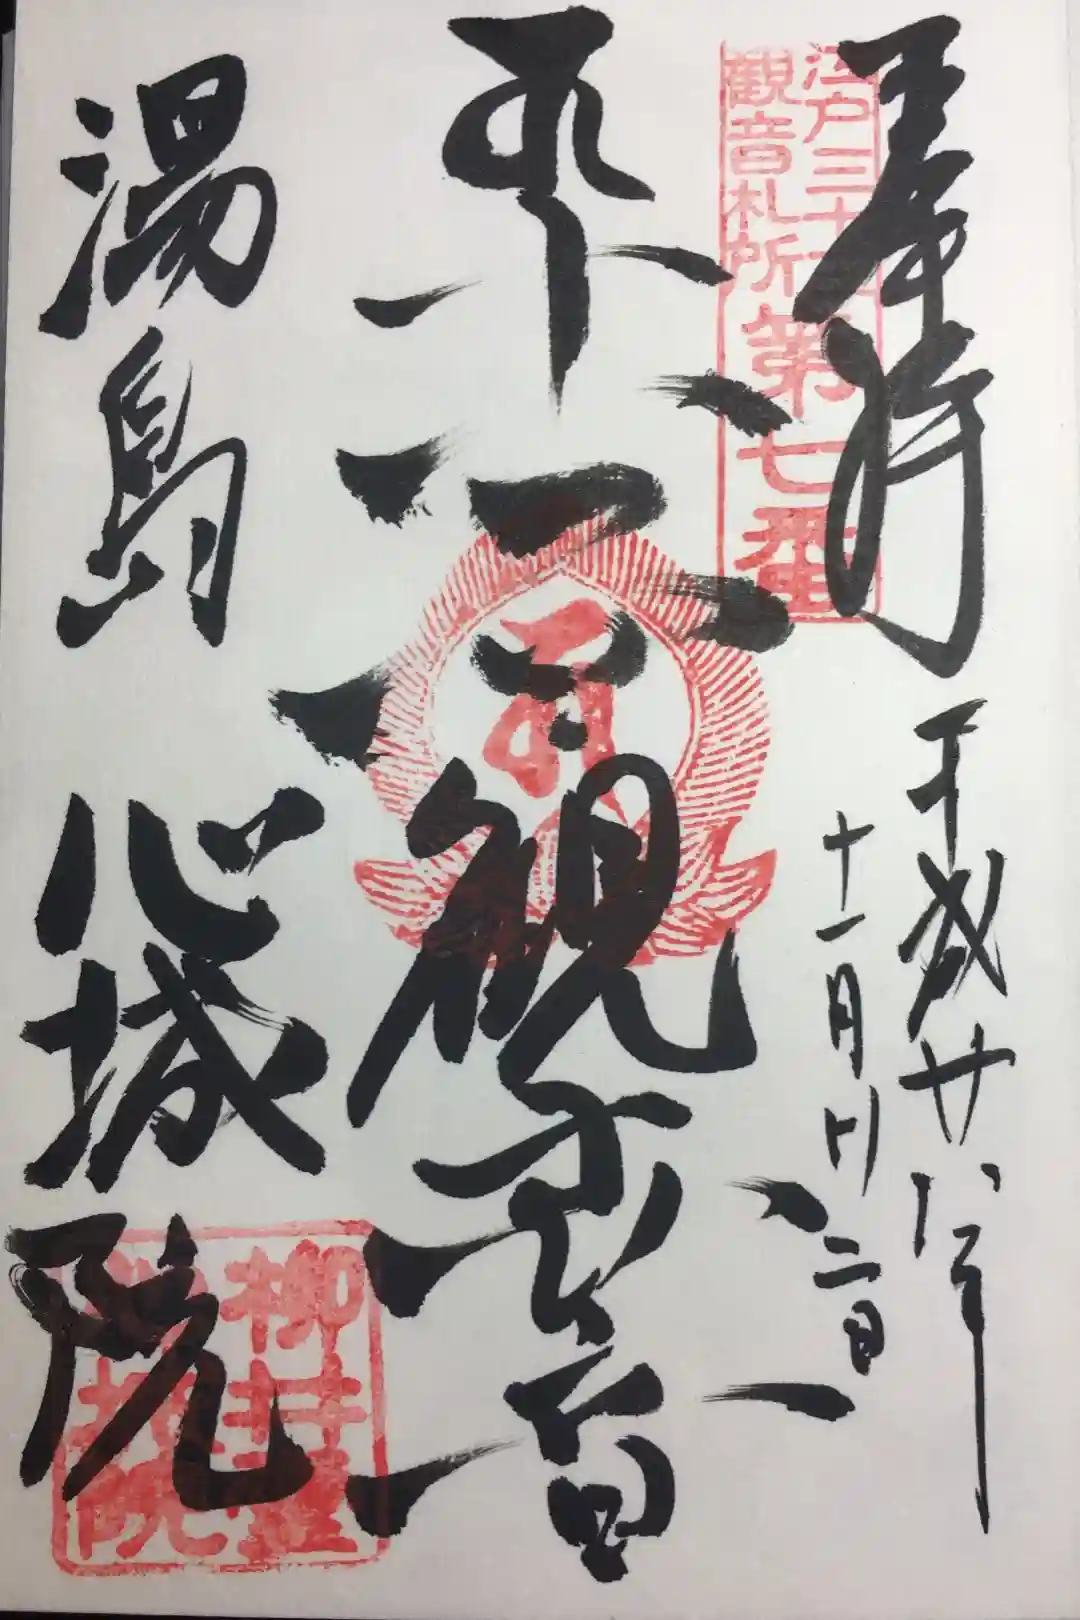 奉拝
江戸三十三
観音札所第七番
平成廿八年
十一月廿二日
観世音
湯島
心城院
柳井堂
心城院